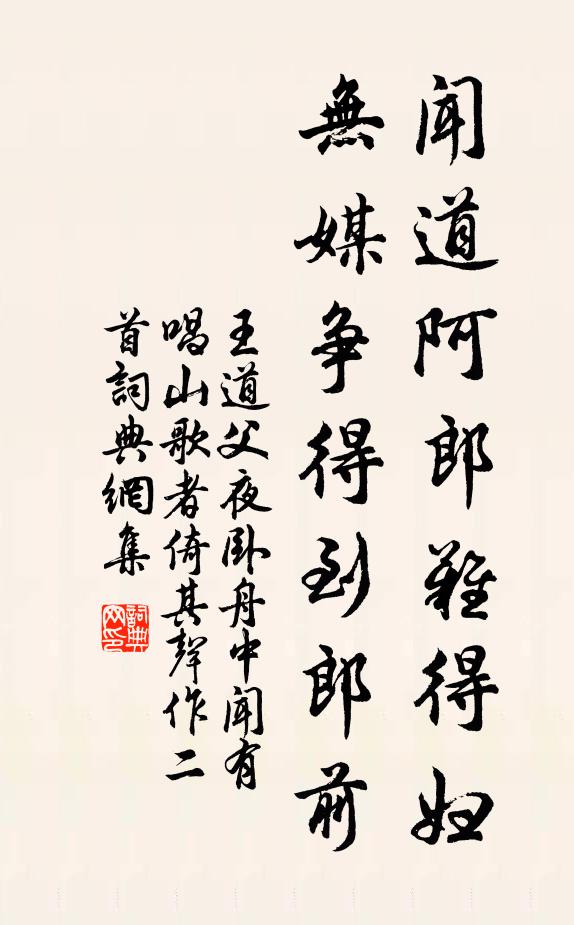 聞道阿郎難得婦
無媒争得到郎前
王道父夜卧舟中聞有
唱山歌者倚其聲作二
首詞典網集
詞典
网印